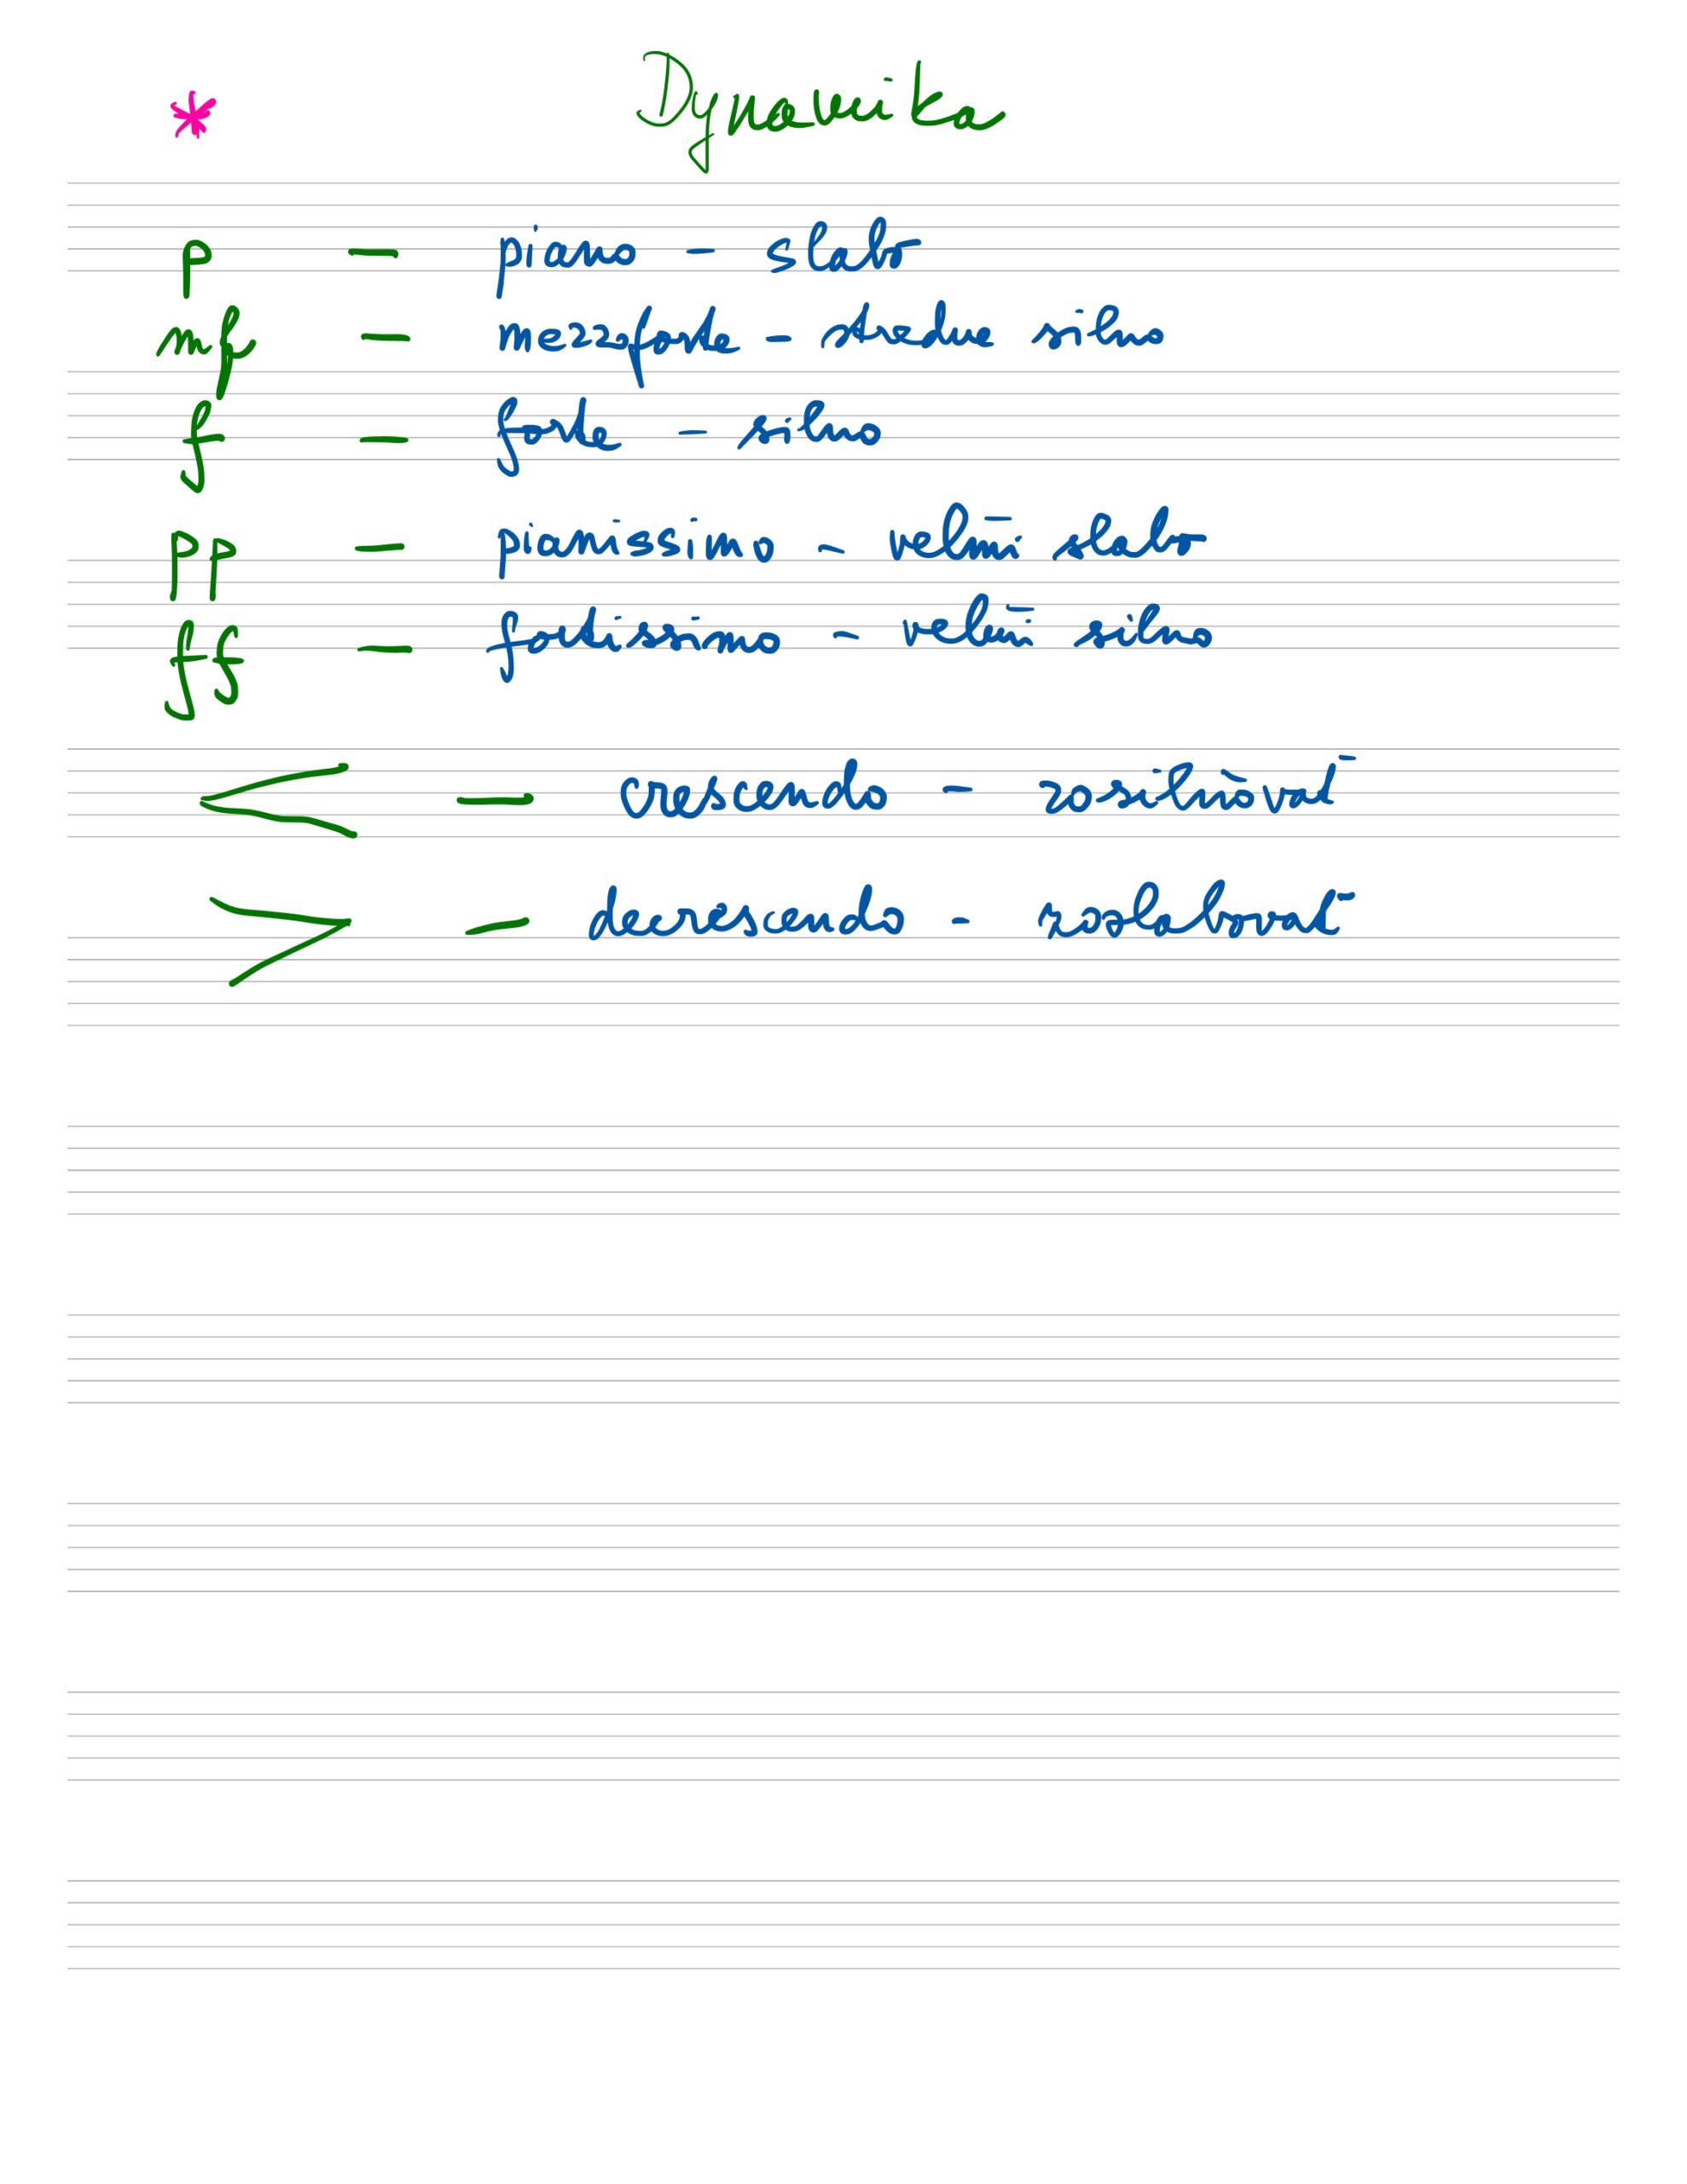 Dynamika
p - piano - slabo
mf - mezzoforte - stredne silno
f - forte - silno
pp - pianissimo - velmi slabo
ff - fortissimo - velmi silno
< - crescendo - zosilňovať
> - decrescendo - zoslabovať